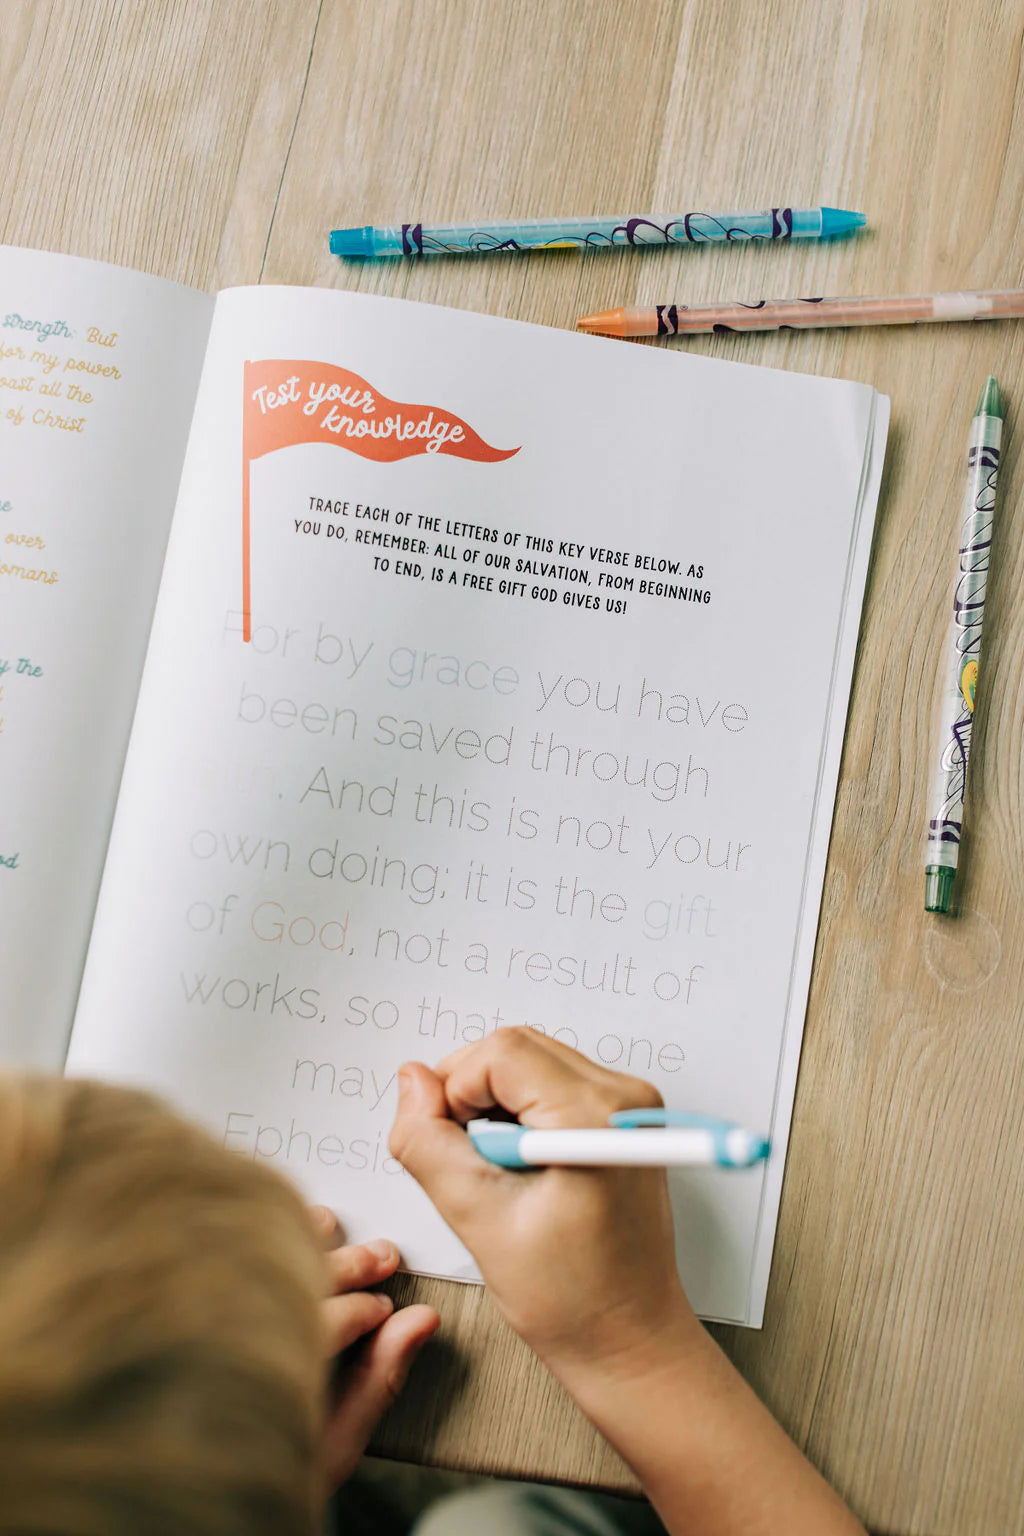 strength: But
for my power
oast all the
of Christ
over
omans
y the
od
Test your
knowledge
TRACE EACH OF THE LETTERS OF THIS KEY VERSE BELOW. AS
YOU DO, REMEMBER: ALL OF OUR SALVATION, FROM BEGINNING
TO END, IS A FREE GIFT GOD GIVES US!
For by grace you have
been saved through
. And this is not your
own doing; it is the gift
of God, not a result of
works, so that no one
may
Ephesia